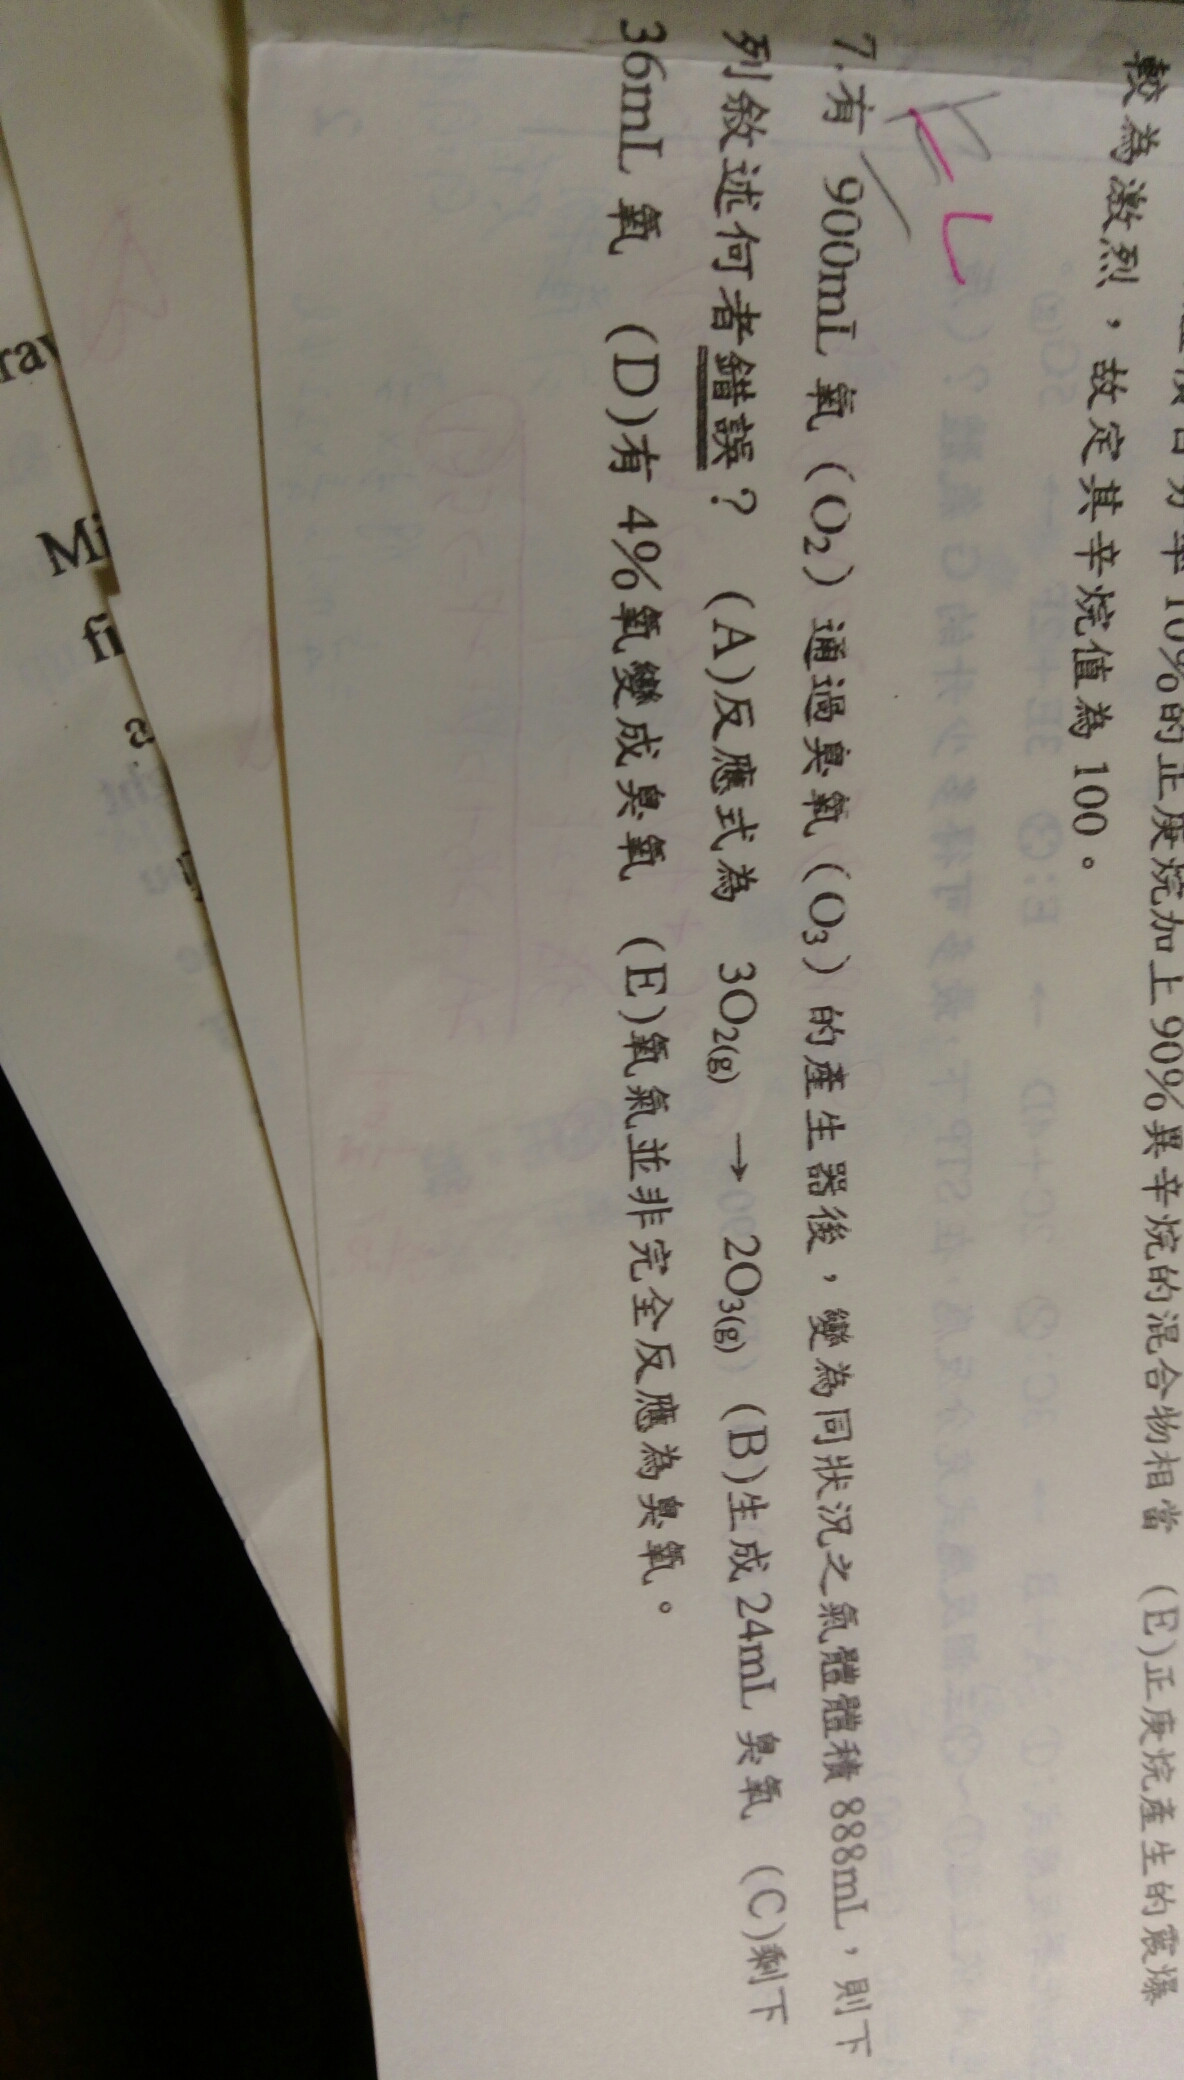 率10%的正庚烷加上90%異辛烷的混合物相當 (E)正庚烷產生的震爆
較為激烈，故定其辛烷值為100。
7.有 900mL 氧（O₂）通過臭氧（O₃）的產生器後，變為同狀況之氣體體積 888mL，則下
列敘述何者錯誤？ (A)反應式為 3O₂(g) → 2O₃(g) (B)生成 24mL 臭氧 (C)剩下
36mL 氧 (D)有 4%氧變成臭氧 (E)氧氣並非完全反應為臭氧。
ray
Mi
fi
a.